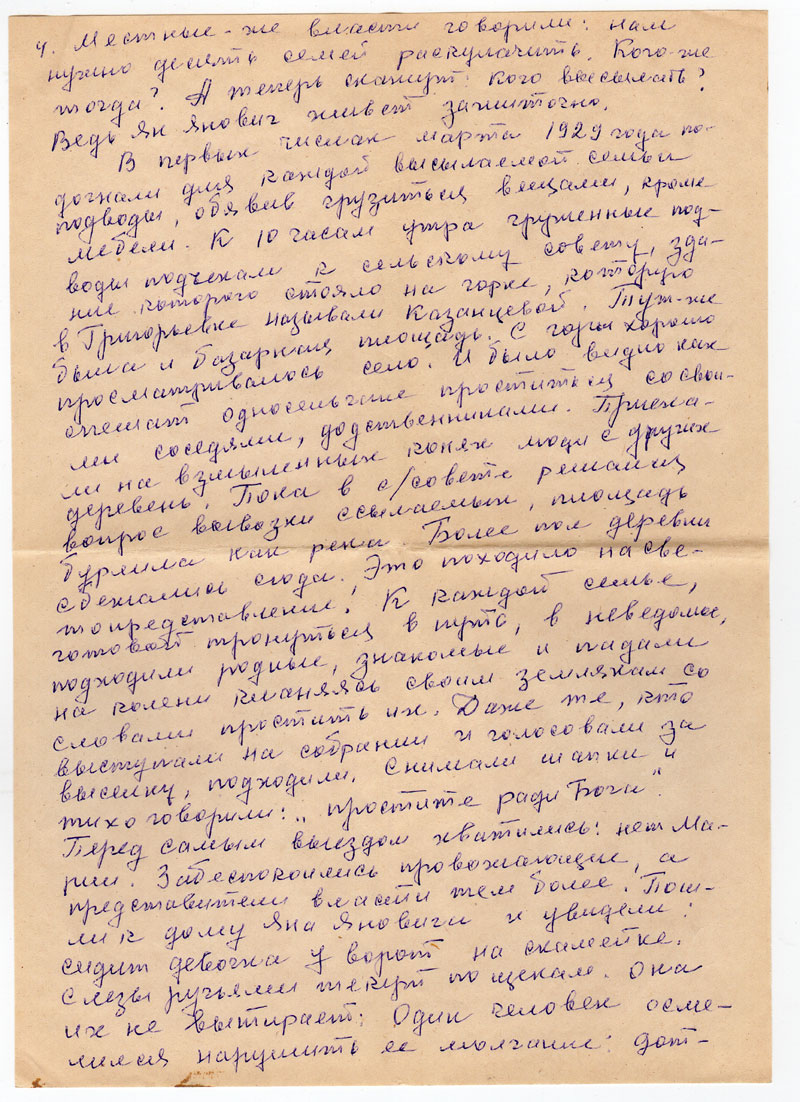 4. Местные-же власти говорили: нам
нужно десять семей раскулачить. Кого-же
тогда? А теперь скажут: Кого высылать?
Ведь Ян Янович живет зажиточно.
В первых числах марта 1929 года по-
догнали для каждой высылаемой семьи
подводы, обявив грузиться вещами, кроме
мебели. К 10 часам утра груженные под-
воды подъехали к сельскому совету, зда-
ние которого стояло на горке, которую
в Григорьевке называли Казанцевой. Тут-же
была и базарная площадь. С горы хорошо
просматривалось село. И было видно как
спешат односельчане проститься со свои-
ми соседями, родственниками. Приеха-
ли на взмыленных конях люди с других
деревень. Пока в с/совете решался
вопрос вывозки ссылаемых, площадь
бурлила как река. Более пол деревни
сбежались сюда. Это походило на све-
топредставление! К каждой семье,
готовой тронуться в путь, в неведомое,
подходили родные, знакомые и падали
на колени кланяясь своим землякам со
словами простить их. Даже те, кто
выступали на собрании и голосовали за
высылку, подходили. Снимали шапки и
тихо говорили: „простите ради Бога".
Перед самым выездом хватились: нет Ма-
рии. Забеспокоились провожающие, а
представители власти тем более. Пош-
ли к дому Яна Яновича и увидели:
сидит девочка у ворот на скамейке.
Слезы ручьями текут по щекам. Она
их не вытирает. Один человек осме-
лился нарушить ее молчание: дот-